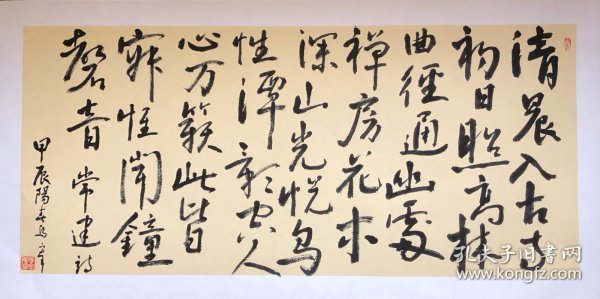 清晨入古寺
初日照高林
曲徑通幽處
禅房花木
深山光悦鳥
性潭影空人
心万籁此皆
寂惟聞鐘
磬音常建詩
甲辰陽春
孔夫子旧书网
www.kongfz.com